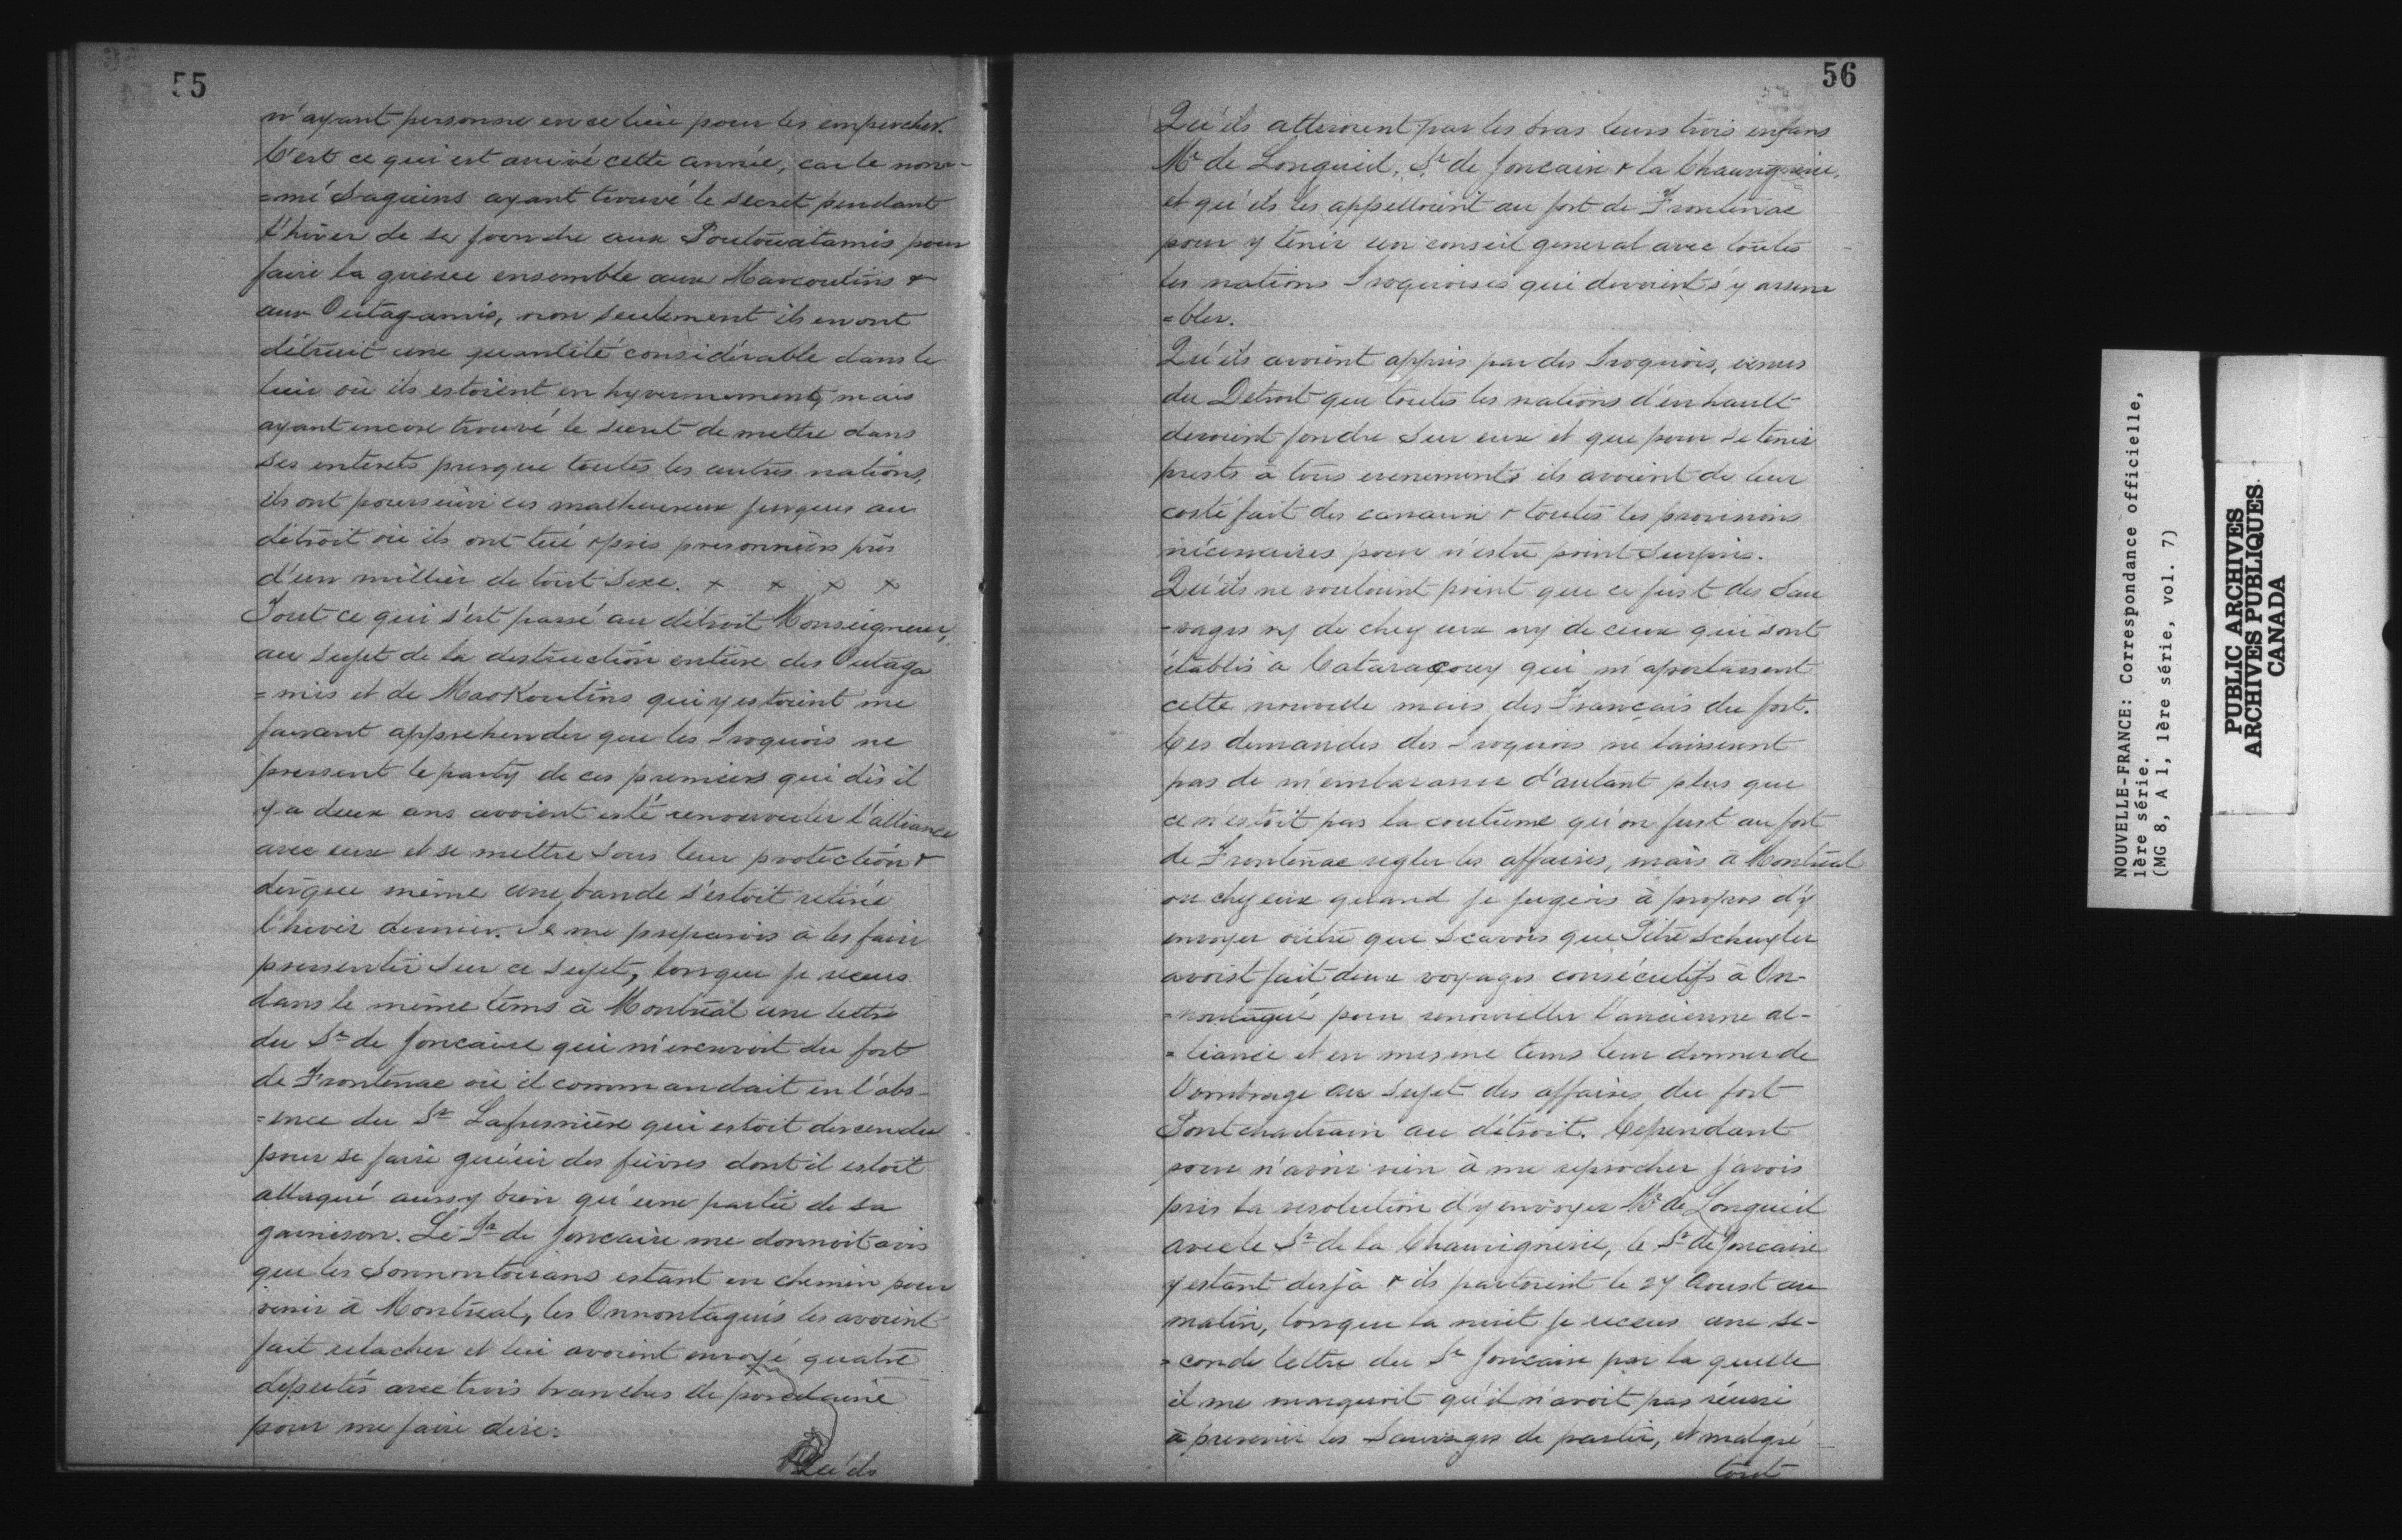 55
n'ayant personne en ce lieu pour les empescher.
C'est ce qui est arrivé cette année, car le nom-
=mé Saguins ayant trouvé le secret pendant
l'hiver de se joendre aux Poutouatamis pour
faire la guerre ensemble aux Mascoutins &
aux Outagamis, non seulement ils en ont
détruit une quantité considérable dans le
lieu où ils estoient en hyvernement, mais
ayant encore trouvé le secret de mettre dans
ses interets presque toutes les autres nations,
ils ont poursuivi ces malheureux jusques au
détroit où ils ont tué & pris prisonniers près
d'un millier de tout sexe. x x x x
Tout ce qui s'est passé au détroit Monseigneur,
au sujet de la destruction entière des Outaga
=mis et de Maskoutins qui y estoient me
faisant apprehender que les Iroquois ne
prissent le party de ces premiers qui dès il
y a deux ans avoient esté renouveller l'alliance
avec eux et se mettre sous leur protection &
dèsque même une bande s'estoit retirée
l'hiver dernier. Je me preparois a les faire
pressentir sur ce sujet, lorsque je receus
dans le même tems à Montréal une lettre
du Sr de Joncaire qui m'ecrivoit du fort
de Frontenac où il commandait en l'abs-
=ence du Sr Lafresnière qui estoit descendu
pour se faire guérir des fièvres dont il estoit
attaqué aussy bien qu'une partie de sa
garnison. Le Sr de Joncaire me donnoit avis
que les Sonnontouans estant en chemin pour
venir à Montréal, les Onnontagués les avoient
fait relacher et lui avoient envoyé quatre
députés avec trois branches de porcelaine
pour me faire dire:
Qu'ils
56
Qu'ils atteroient par les bras leurs trois enfans
Mr de Longueil, Sr de Joncaire & la Chauvignerie,
et qu'ils les appelloient au fort de Frontenac
pour y tenir un conseil general avec toutes
les nations Iroquoises qui devoient s'y assem
=bler.
Qu'ils avoient appris par des Iroquois, venus
du Detroit que toutes les nations d'en hault
devoient fondre sur eux et que pour se tenir
prests à tous evenements ils avoient de leur
costé fait des canaux & toutes les provisions
nécessaires pour n'estre point surpris.
Qu'ils ne vouloient point que ce fust des Sau
-vages ny de chez eux ny de ceux qui sont
établis à Cataracouy qui m'aportassent
cette nouvelle mais des Français du fort.
Ces demandes des Iroquois ne laisserent
pas de m'embarasser d'autant plus que
ce n'estoit pas la coutume qu'on fust au fort
de Frontenac regler les affaires, mais à Montréal
ou chez eux quand je jugeois à propos d'y
envoyer outre que scavois que Pitre Schuyler
avoist fait deux voyages consécutifs à On-
=nontagué pour renouveller l'ancienne al-
=liance et en mesme tems leur donner de
l'ombrage au sujet des affaires du fort
Pontchartrain au détroit. Cependant
pour n'avoir rien à me reprocher j'avois
pris la resolution d'y envoyer Mr de Longueil
avec le Sr de la Chauvignerie, le Sr de Joncaire
y estant desja & ils partoient le 27 Aoust au
matin, lorsque la nuit je receus une se-
=conde lettre du Sr Joncaire par la quelle
il me marquoit qu'il n'avoit pas réussi
à prevenir les Sauvages de partir, et malgré
tout
NOUVELLE-FRANCE: Correspondance officielle,
1ère série.
(MG 8, A 1, 1ère série, vol. 7)
PUBLIC ARCHIVES
ARCHIVES PUBLIQUES
CANADA